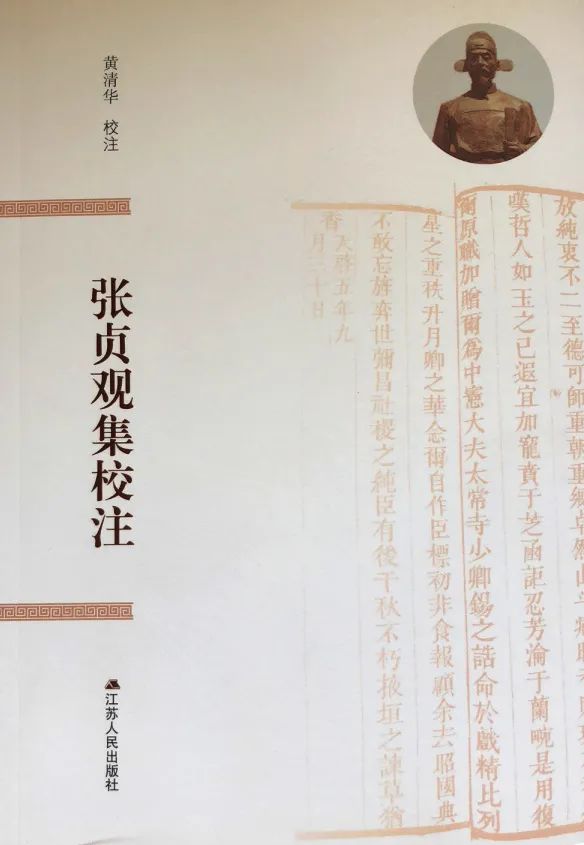 黄清华 校注
张贞观集校注
江苏人民出版社
放純衷不二至德可師重朝重
嘆哲人如玉之已遐宜加寵賁于芝函詎忍芳淪于蘭畹是用復
爾原職加贈爾為中憲大夫太常寺少卿錫之誥命於戲精比列
星之重秩升月卿之華念爾自作臣標初非食報顧余去昭國典
不敢忘旃弈世彌昌社稷之純臣有後千秋不朽掖垣之諫草猶
香天啓五年九
月三十日